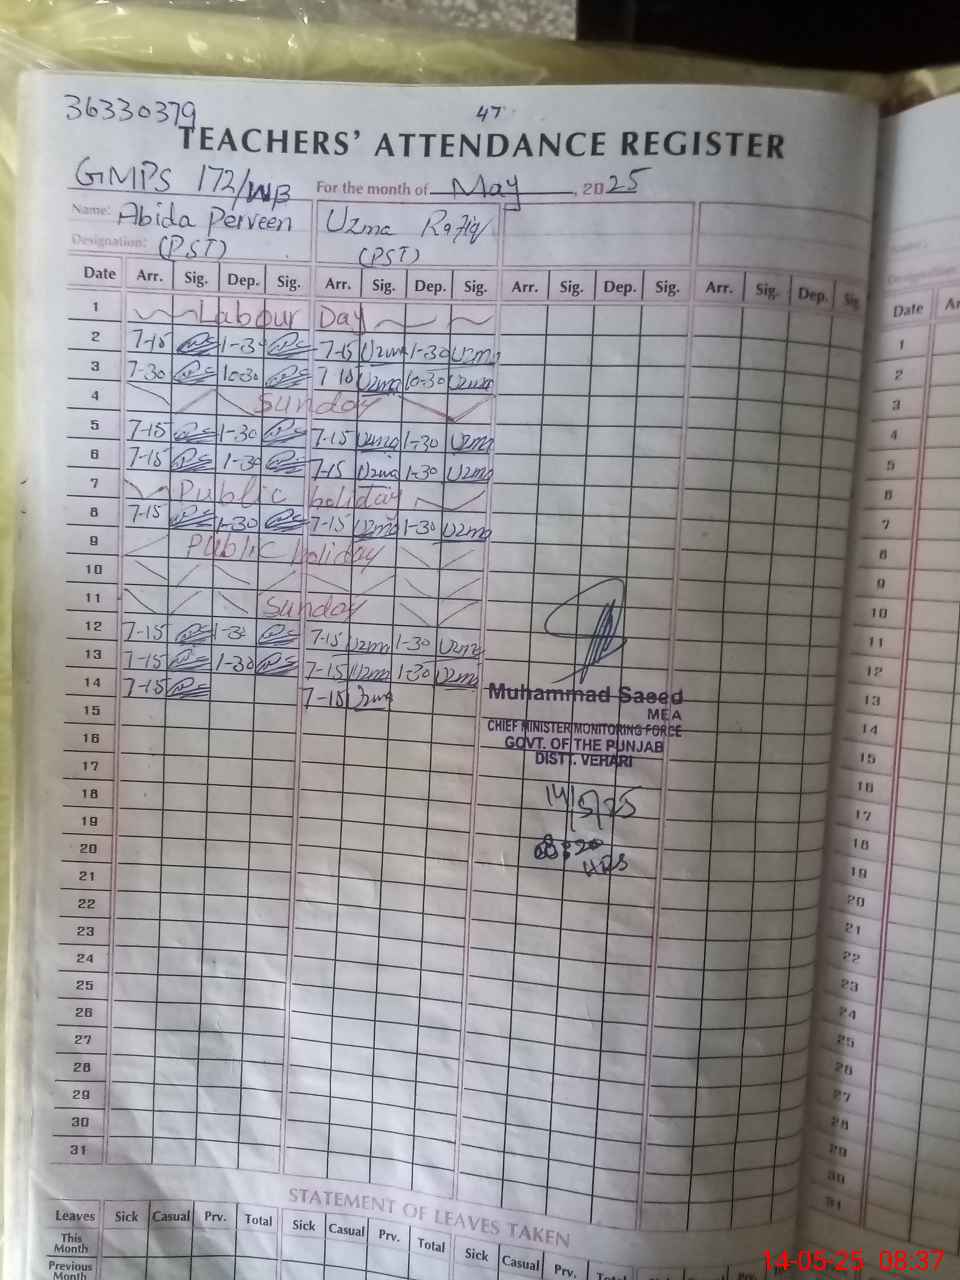 36330379
47
TEACHERS' ATTENDANCE REGISTER
GMPS 172/WB For the month of May, 2025
Name: Abida Perveen Uzma Rafiq
Designation: (PST) (PST)
Date Arr. Sig. Dep. Sig. Arr. Sig. Dep. Sig. Arr. Sig. Dep. Sig. Arr. Sig. Dep. Sig
1 Labour Day
2 7-15 1-30 7-15 Uzma 1-30 Uzma
3 7-30 10-30 7 10 Uzma 10-30 Uzma
4 Sunday
5 7-15 1-30 7-15 Uzma 1-30 Uzma
6 7-15 1-30 7-15 Uzma 1-30 Uzma
7 Public holiday
8 7-15 1-30 7-15 Uzma 1-30 Uzma
9 Public holiday
10
11 Sunday
12 7-15 1-30 7-15 Uzma 1-30 Uzma
13 7-15 1-30 7-15 Uzma 1-30 Uzma
14 7-15 7-15 Uzma
15
16
17
18
19
20
21
22
23
24
25
26
27
28
29
30
31
Muhammad Saeed
MEA
CHIEF MINISTER MONITORING FORCE
GOVT. OF THE PUNJAB
DISTT. VEHARI
14/5/25
08:20
HRS
STATEMENT OF LEAVES TAKEN
Leaves Sick Casual Prv. Total Sick Casual Prv. Total Sick Casual Prv.
This
Month
Previous
Month
Date
1
2
3
4
5
6
7
8
9
10
11
12
13
14
15
16
17
18
19
20
21
22
23
24
25
26
27
28
29
30
31
14-05-25 08:37